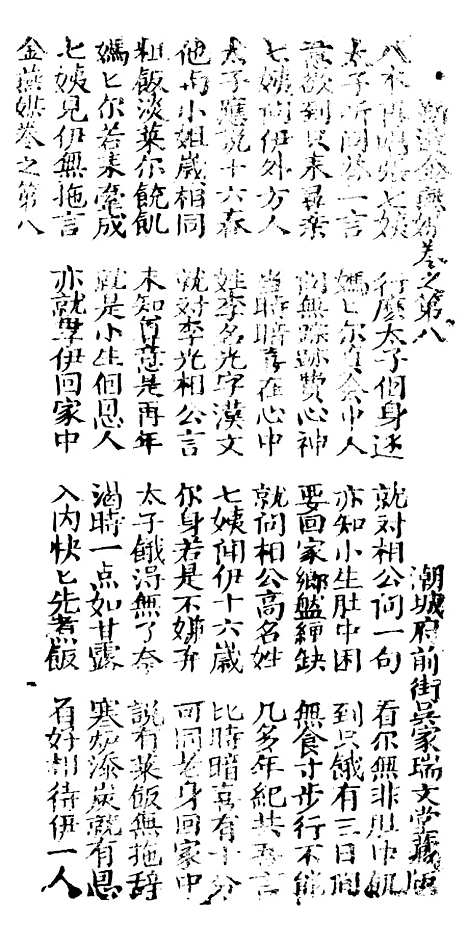 新造金燕媒卷之第八 潮城府前街吳家瑞文堂藏版
八本再唱張七姨 行 太子個身迷 就对相公问一句 看尔無非肚中飢
太子听问 一言 媽匕尔真会中人 亦知小生肚中困 到只餓有三日间
意欲到只来尋亲 訪無踪跡費心神 要回家鄉盤纏缺 無食寸步行不能
七姨问伊外方人 当時暗喜在心中 就问相公高名姓 几多年紀共吾言
太子應說十六春 姓李名光字漢文 七姨聞伊十六歲 比時暗喜有十分
他与小姐歲相同 就对李光相公言 尔身若是不嫌弃 可同老身回家中
粗飯淡菜尔饒飢 未知尊意是再年 太子餓得無了奈 說有菜飯無拖辞
媽匕尔若来 成 就是小生個恩人 渴時一点如甘露 寒炉添炭就有恩
七姨見伊無拖言 亦就 伊回家中 入内快匕先煮飯 好相待伊一人
金燕媒卷之第八